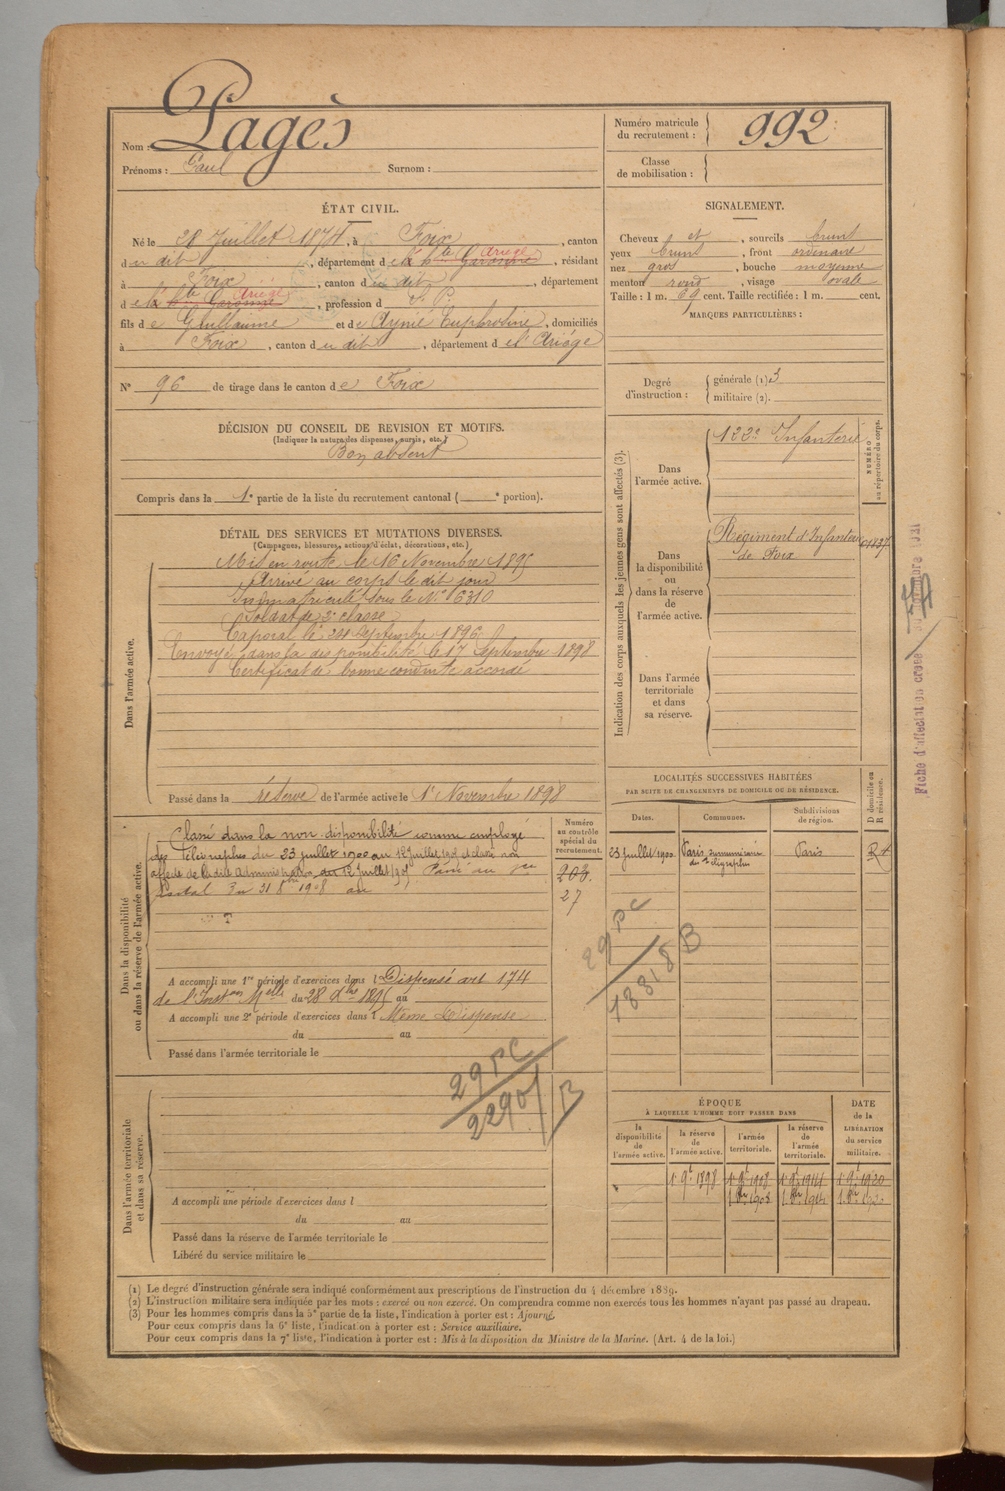 Nom : Pagès
Prénoms : Paul Surnom :
Numéro matricule
du recrutement : 992
Classe
de mobilisation :
ÉTAT CIVIL.
Né le 28 Juillet 1874, à Foix, canton
du dit, département de la Hte Garonne Ariège, résidant
à Foix, canton du dit, département
de la Hte Garonne Ariège, profession d
fils de Guillaume et de Aynié Euphrosine, domiciliés
à Foix, canton du dit, département de l'Ariège
N° 96 de tirage dans le canton de Foix
DÉCISION DU CONSEIL DE REVISION ET MOTIFS.
(Indiquer la nature des dispenses, sursis, etc.)
Bon absent
Compris dans la 1e partie de la liste du recrutement cantonal ( e portion).
SIGNALEMENT.
Cheveux et, sourcils bruns
yeux bruns, front ordinaire
nez gros, bouche moyenne
menton rond, visage ovale
Taille : 1 m. 69 cent. Taille rectifiée : 1 m. cent.
MARQUES PARTICULIÈRES :
Degré
d'instruction :
générale (1) 3
militaire (2).
DÉTAIL DES SERVICES ET MUTATIONS DIVERSES.
(Campagnes, blessures, actions d'éclat, décorations, etc.)
Dans l'armée active.
Mis en route le 16 Novembre 1895
Arrivé au corps le dit jour
Immatriculé sous le N° 6310
Soldat de 2e classe
Caporal le 24 Septembre 1896
Envoyé dans la disponibilité le 17 Septembre 1898
Certificat de bonne conduite accordé
Passé dans la réserve de l'armée active le 1r Novembre 1898
Indication des corps auxquels les jeunes gens sont affectés (3).
NUMÉRO
au répertoire du corps.
Dans
l'armée active.
122e Infanterie
Dans
la disponibilité
ou
dans la réserve
de
l'armée active.
Régiment d'Infanterie
de Foix
Dans l'armée
territoriale
et dans
sa réserve.
Fiche d'affectation
Dans la disponibilité
ou dans la réserve de l'armée active.
Classé dans la non disponibilité comme employé
des Télégraphes du 23 juillet 1900 au 12 juillet 1907
Numéro
au contrôle
spécial du
recrutement.
203.
27
A accompli une 1re période d'exercices dans l Dispensé art 174
de l' du 28 Xbre 1895 au
A accompli une 2e période d'exercices dans l Même Dispense
du au
Passé dans l'armée territoriale le
LOCALITÉS SUCCESSIVES HABITÉES
PAR SUITE DE CHANGEMENTS DE DOMICILE OU DE RÉSIDENCE.
D domicile ou
R résidence.
Dates. Communes. Subdivisions
de région.
23 Juillet 1900 Paris, Paris R
29 PC
18818 B
29 PC
2290 B
Dans l'armée territoriale
et dans sa réserve.
A accompli une période d'exercices dans l
du au
Passé dans la réserve de l'armée territoriale le
Libéré du service militaire le
ÉPOQUE
À LAQUELLE L'HOMME DOIT PASSER DANS
DATE
de la
LIBÉRATION
du service
militaire.
la
disponibilité
de
l'armée active.
la réserve
de
l'armée active.
l'armée
territoriale.
la réserve
de
l'armée
territoriale.
1r 9t 1898 1r 9t 1908 1r 9t 1914 1r 9t 1920
(1) Le degré d'instruction générale sera indiqué conformément aux prescriptions de l'instruction du 4 décembre 1889.
(2) L'instruction militaire sera indiquée par les mots : exercé ou non exercé. On comprendra comme non exercés tous les hommes n'ayant pas passé au drapeau.
(3) Pour les hommes compris dans la 5e partie de la liste, l'indication à porter est : Ajourné.
Pour ceux compris dans la 6e liste, l'indication à porter est : Service auxiliaire.
Pour ceux compris dans la 7e liste, l'indication à porter est : Mis à la disposition du Ministre de la Marine. (Art. 4 de la loi.)